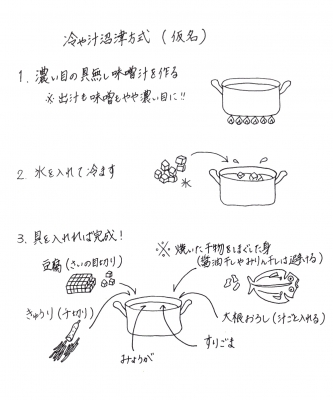 冷や汁沼津方式（仮名）
1. 濃い目の具無し味噌汁を作る
※出汁も味噌もやや濃い目に!!
2. 氷を入れて冷ます
氷
3. 具を入れれば完成！
豆腐（さいの目切り）
※焼いた干物をほぐした身
（醤油干しやみりん干しは避ける）
きゅうり（千切り）
大根おろし（汁ごと入れる）
みょうが
すりごま